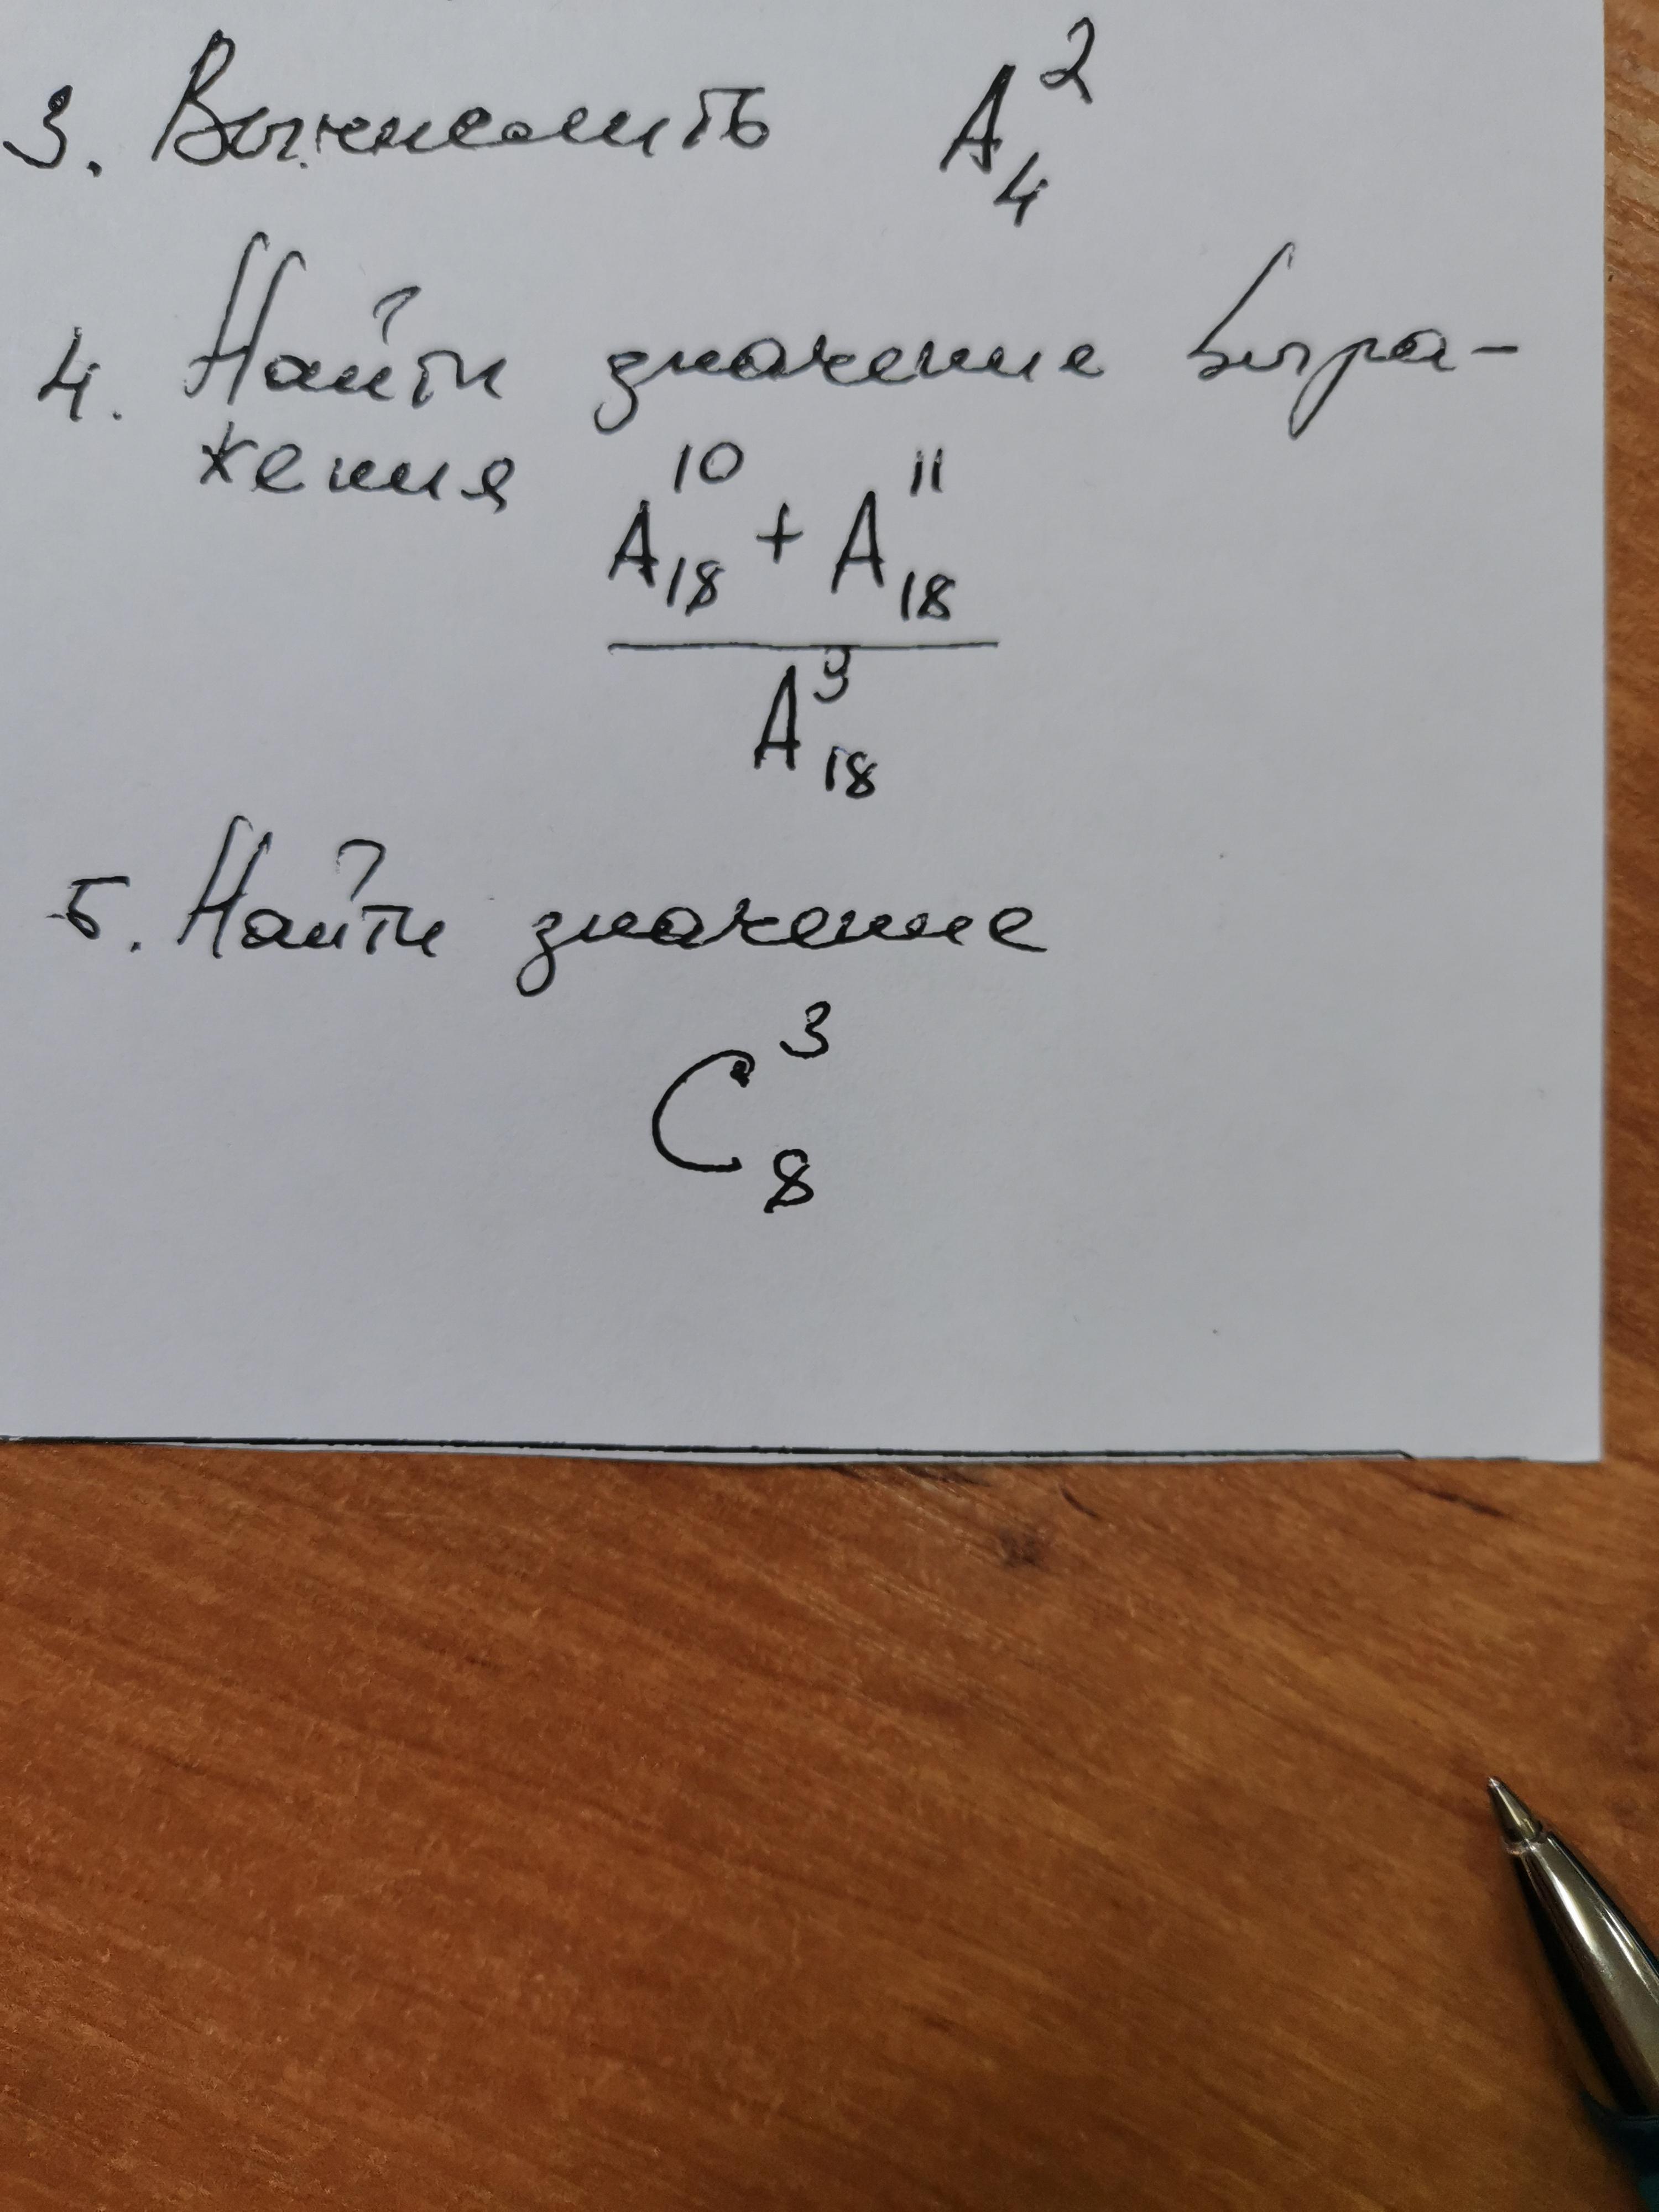 3. Вычислить A₄²
4. Найти значение выра-
жения
A₁₈¹⁰ + A₁₈¹¹
A₁₈⁹
5. Найти значение
C₈³